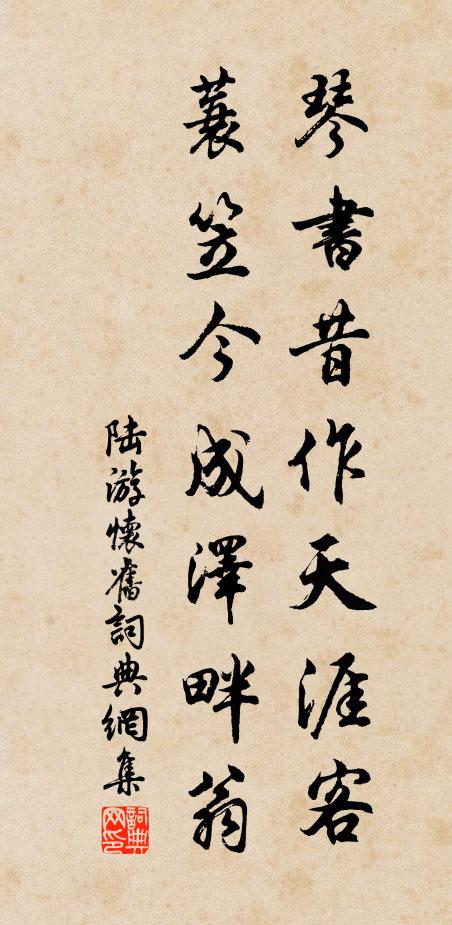 琴書昔作天涯客
蓑笠今成澤畔翁
陸游懷舊詞典網集
詞典网印